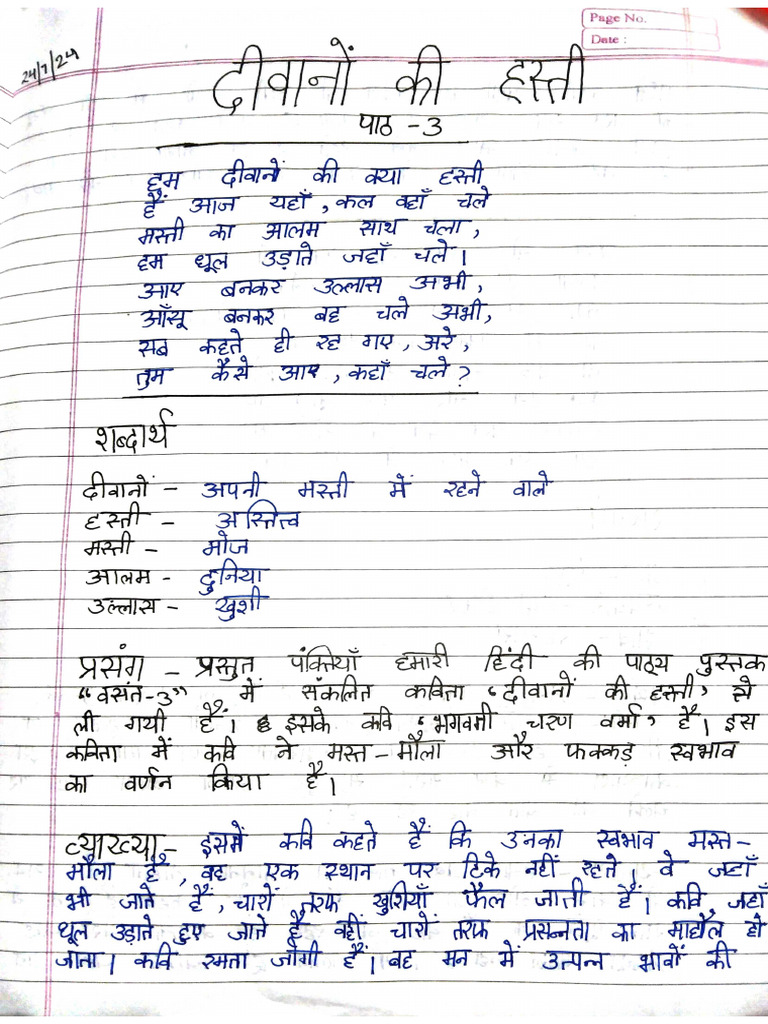 Page No.
Date :
24/7/24
दीवानों की हस्ती
पाठ -3
हम दीवानों की क्या हस्ती
हैं आज यहाँ, कल वहाँ चले
मस्ती का आलम साथ चला,
हम धूल उड़ाते जहाँ चले।
आए बनकर उल्लास अभी,
आँसू बनकर बह चले अभी,
सब कहते ही रह गए, अरे,
तुम कैसे आए, कहाँ चले?
शब्दार्थ
दीवानों - अपनी मस्ती में रहने वाले
हस्ती - अस्तित्व
मस्ती - मोज
आलम - दुनिया
उल्लास - खुशी
प्रसंग - प्रस्तुत पंक्तियाँ हमारी हिंदी की पाठ्य पुस्तक
"वसंत-3" में संकलित कविता 'दीवानों की हस्ती' से
ली गयी हैं। इसके कवि 'भगवती चरण वर्मा' हैं। इस
कविता में कवि ने मस्त-मौला और फक्कड़ स्वभाव
का वर्णन किया है।
व्याख्या- इसमें कवि कहते हैं कि उनका स्वभाव मस्त-
मौला है, वह एक स्थान पर टिके नहीं रहते। वे जहाँ
भी जाते हैं, चारों तरफ खुशियाँ फैल जाती हैं। कवि जहाँ
धूल उड़ाते हुए जाते हैं वहीं चारों तरफ प्रसन्नता का माहौल हो
जाता। कवि रमता जोगी हैं। वह मन मे उत्पन्न भावों की